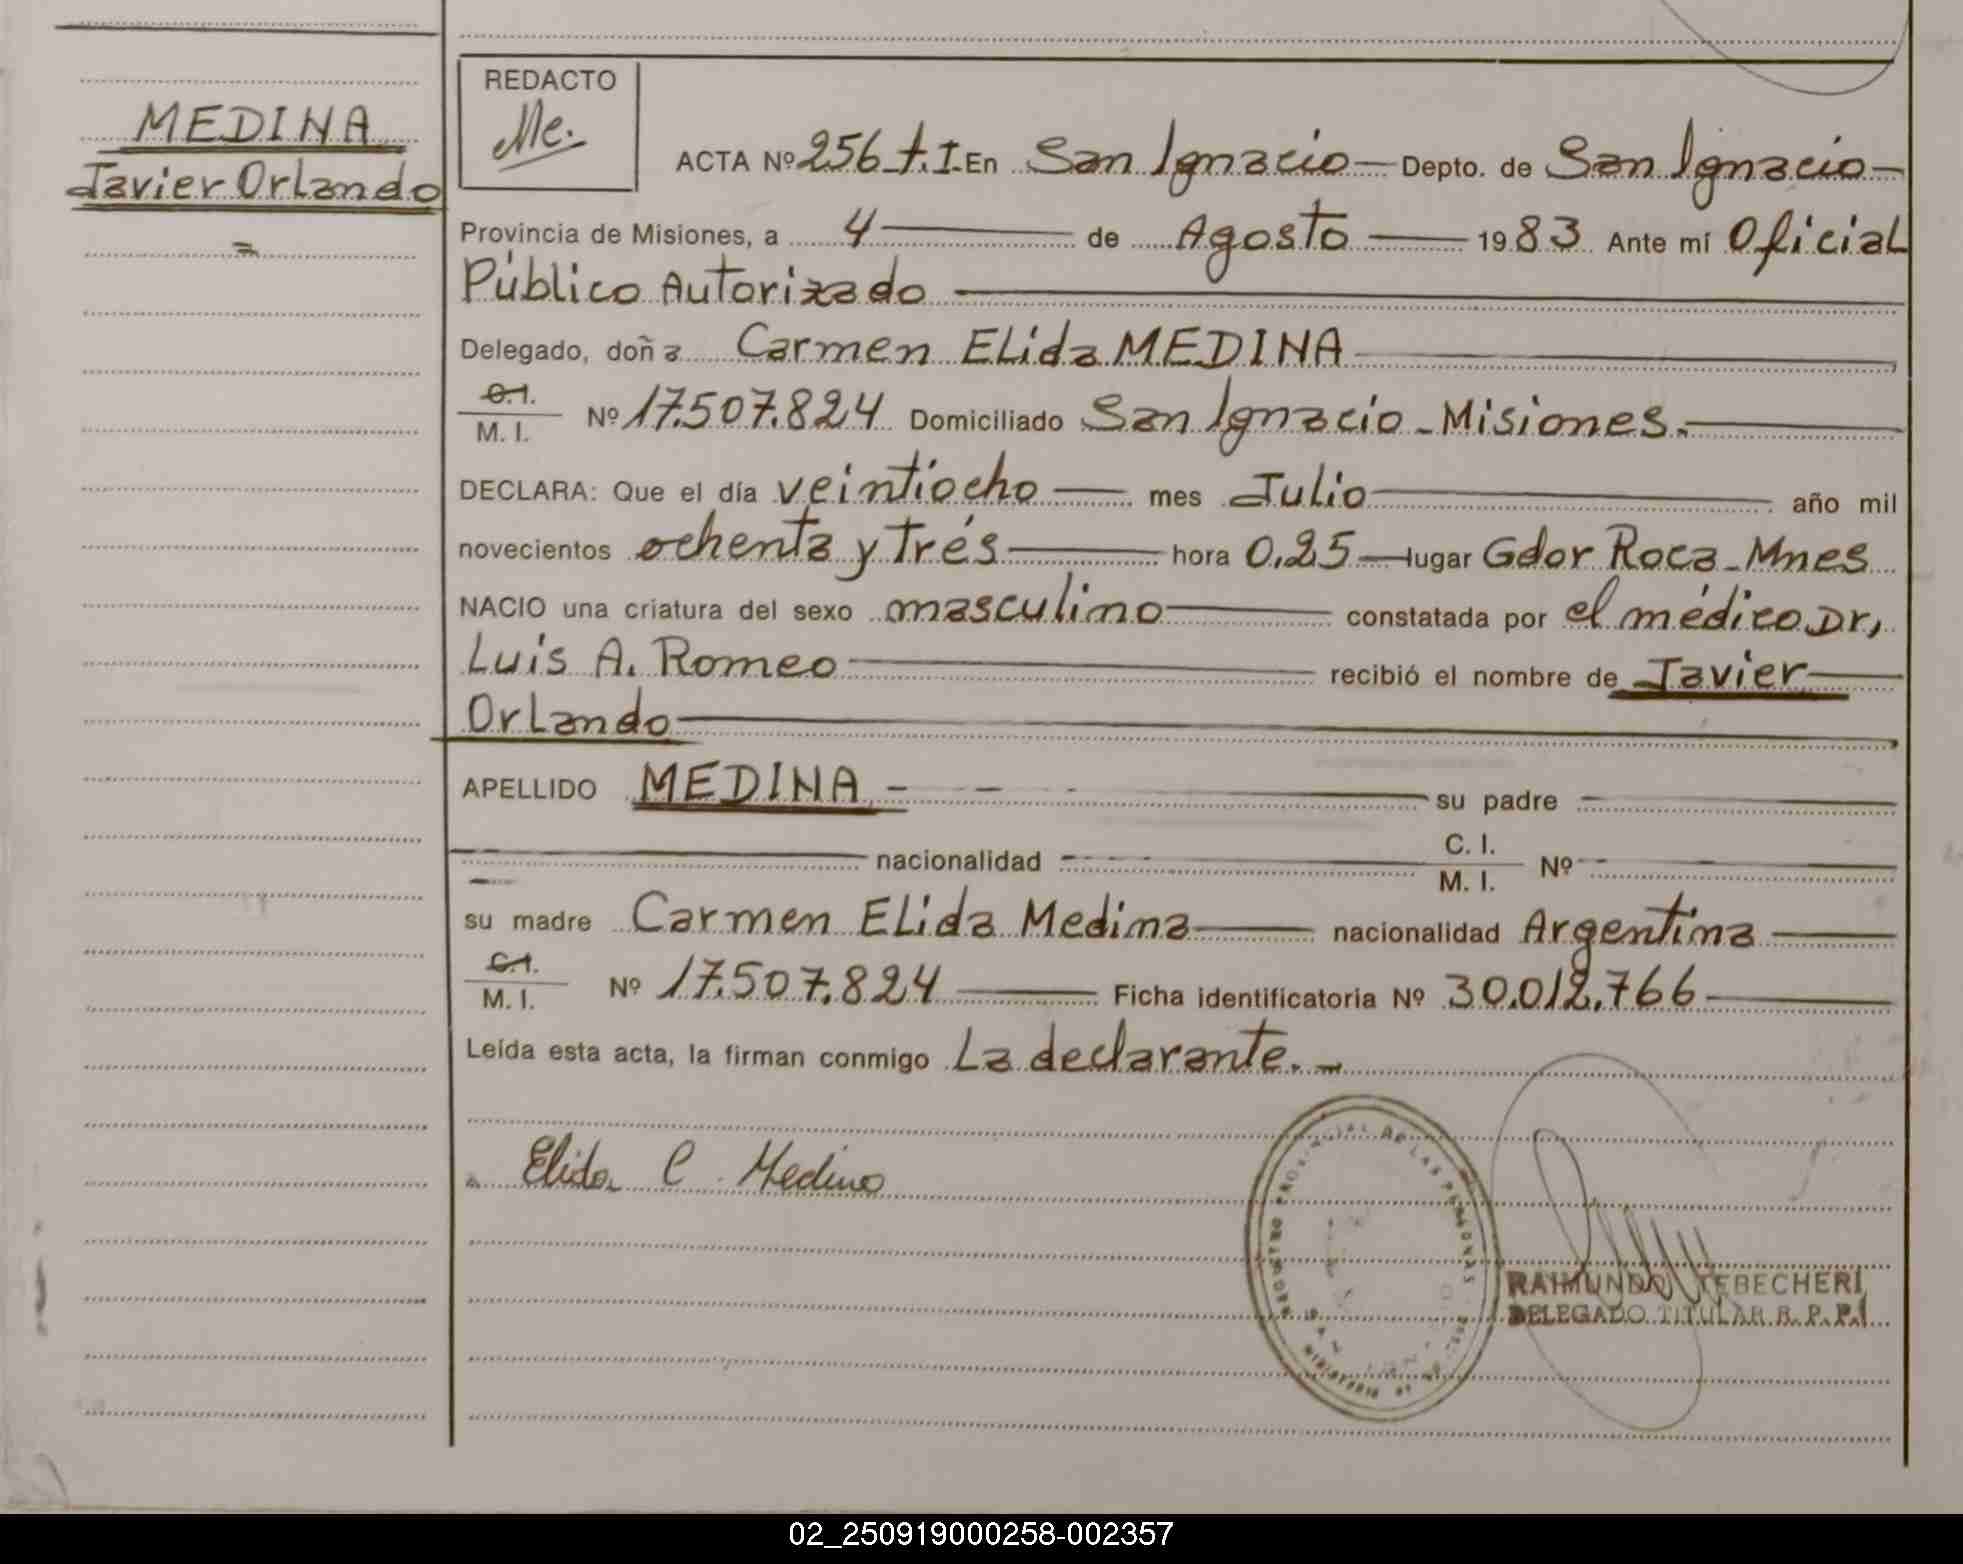 MEDINA
Javier Orlando
REDACTO
Me.
ACTA Nº 256 t.I. En San Ignacio Depto. de San Ignacio
Provincia de Misiones, a 4 de Agosto 1983 Ante mí Oficial
Público Autorizado
Delegado, doña Carmen Elida MEDINA
C.I. / M.I. Nº 17.507.824 Domiciliado San Ignacio - Misiones.
DECLARA: Que el día veintiocho mes Julio año mil
novecientos ochenta y trés hora 0,25 lugar Gdor Roca - Mnes
NACIO una criatura del sexo masculino constatada por el médico Dr,
Luis A. Romeo recibió el nombre de Javier
Orlando
APELLIDO MEDINA su padre
nacionalidad C. I. / M. I. Nº
su madre Carmen Elida Medina nacionalidad Argentina
C.I. / M.I. Nº 17.507.824 Ficha identificatoria Nº 30.012.766
Leída esta acta, la firman conmigo La declarante.
Elida C Medina
REGISTRO PROVINCIAL DE LAS PERSONAS
RAIMUNDO TEBECHERI
DELEGADO TITULAR R. P. P.
02_250919000258-002357